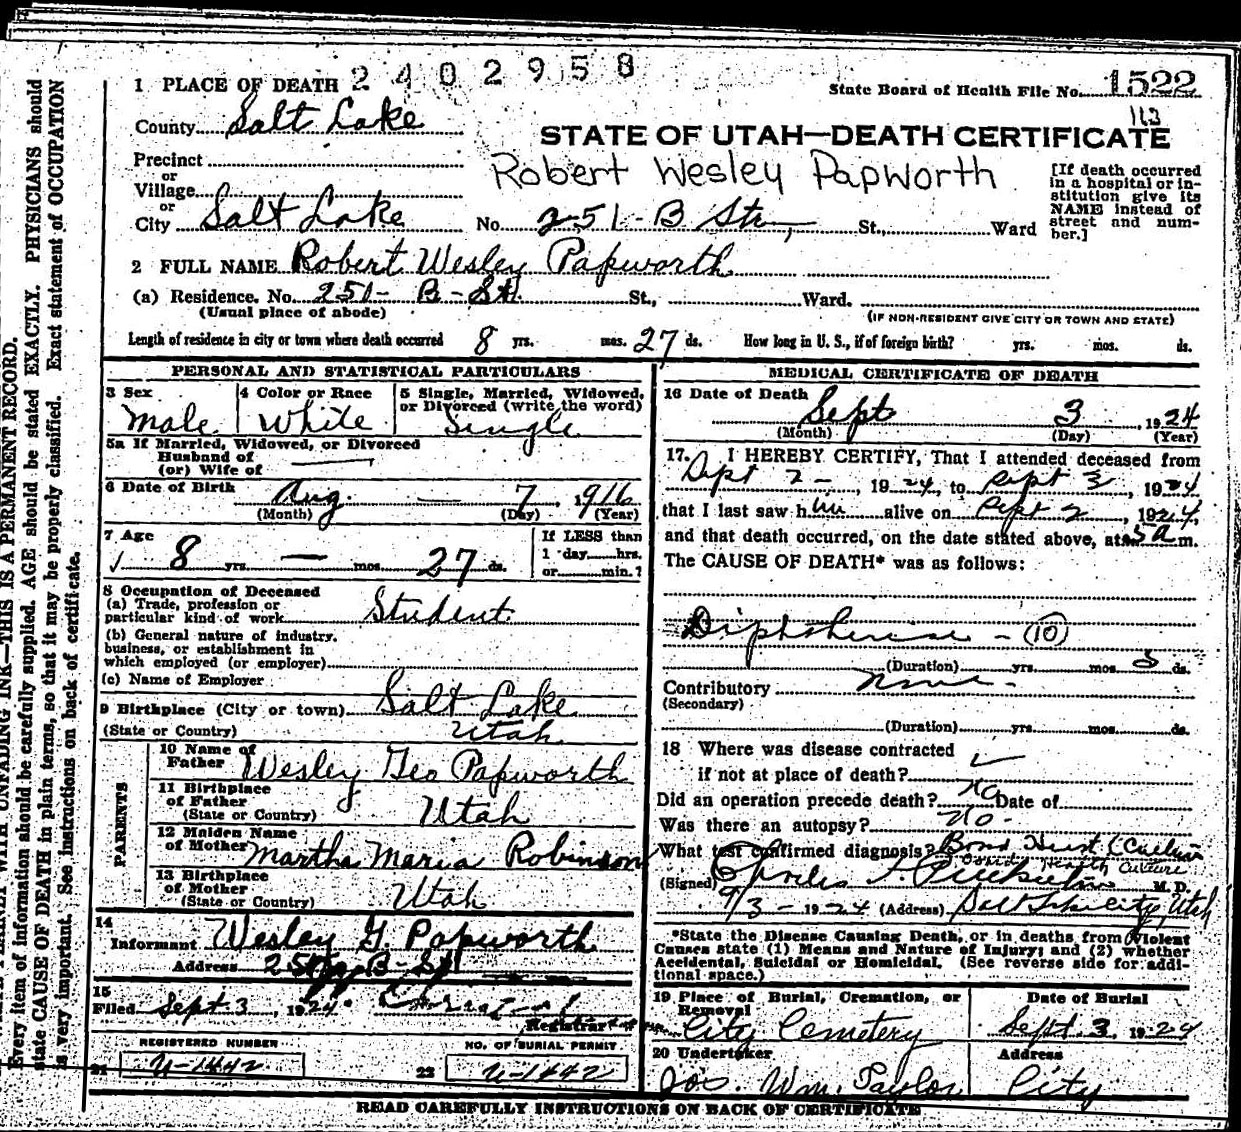 2402958
1 PLACE OF DEATH
State Board of Health File No. 1522
113
County Salt Lake
STATE OF UTAH—DEATH CERTIFICATE
Precinct
or
Robert Wesley Papworth
Village
or
City Salt Lake No. 251-B Str, St., Ward
[If death occurred
in a hospital or in-
stitution give its
NAME instead of
street and num-
ber.]
2 FULL NAME Robert Wesley Papworth
(a) Residence. No. 251- B - St. St., Ward.
(Usual place of abode) (IF NON-RESIDENT GIVE CITY OR TOWN AND STATE)
Length of residence in city or town where death occurred 8 yrs. mos. 27 ds. How long in U. S., if of foreign birth? yrs. mos. ds.
PERSONAL AND STATISTICAL PARTICULARS
3 Sex 4 Color or Race 5 Single, Married, Widowed,
or Divorced (write the word)
Male White Single
5a If Married, Widowed, or Divorced
Husband of
(or) Wife of —
6 Date of Birth Aug. — 7, 1916
(Month) (Day) (Year)
7 Age If LESS than
1 day hrs.
8 yrs. — mos. 27 ds. or min.?
8 Occupation of Deceased
(a) Trade, profession or
particular kind of work Student
(b) General nature of industry,
business, or establishment in
which employed (or employer)
(c) Name of Employer
9 Birthplace (City or town) Salt Lake
(State or Country) Utah
PARENTS
10 Name of
Father Wesley Geo Papworth
11 Birthplace
of Father
(State or Country) Utah
12 Maiden Name
of Mother Martha Maria Robinson
13 Birthplace
of Mother
(State or Country) Utah
14
Informant Wesley G. Papworth
Address 251 B-St
15
Filed Sept 3, 1924
Registrar
REGISTERED NUMBER NO. OF BURIAL PERMIT
21 U-1442 22 U-1442
MEDICAL CERTIFICATE OF DEATH
16 Date of Death
Sept 3, 1924
(Month) (Day) (Year)
17. I HEREBY CERTIFY, That I attended deceased from
Sept 2-, 1924, to Sept 3, 1924
that I last saw him alive on Sept 2, 1924,
and that death occurred, on the date stated above, at 5 a m.
The CAUSE OF DEATH* was as follows:
Diphtheria - (10)
(Duration) yrs. mos. 5 ds.
Contributory None -
(Secondary)
(Duration) yrs. mos. ds.
18 Where was disease contracted
if not at place of death?
Did an operation precede death? No Date of
Was there an autopsy? No -
What test confirmed diagnosis? (Culture
Health Culture
(Signed) Charles M.D.
9/3 - 1924 (Address) Salt Lake City, Utah
*State the Disease Causing Death, or in deaths from Violent
Causes state (1) Means and Nature of Injury; and (2) whether
Accidental, Suicidal or Homicidal. (See reverse side for addi-
tional space.)
19 Place of Burial, Cremation, or Date of Burial
Removal
City Cemetery Sept. 3, 1924
20 Undertaker Address
Jos. Wm. Taylor City
READ CAREFULLY INSTRUCTIONS ON BACK OF CERTIFICATE
WITH UNFADING INK—THIS IS A PERMANENT RECORD.
Every item of information should be carefully supplied. AGE should be stated EXACTLY. PHYSICIANS should
state CAUSE OF DEATH in plain terms, so that it may be properly classified. Exact statement of OCCUPATION
is very important. See instructions on back of certificate.